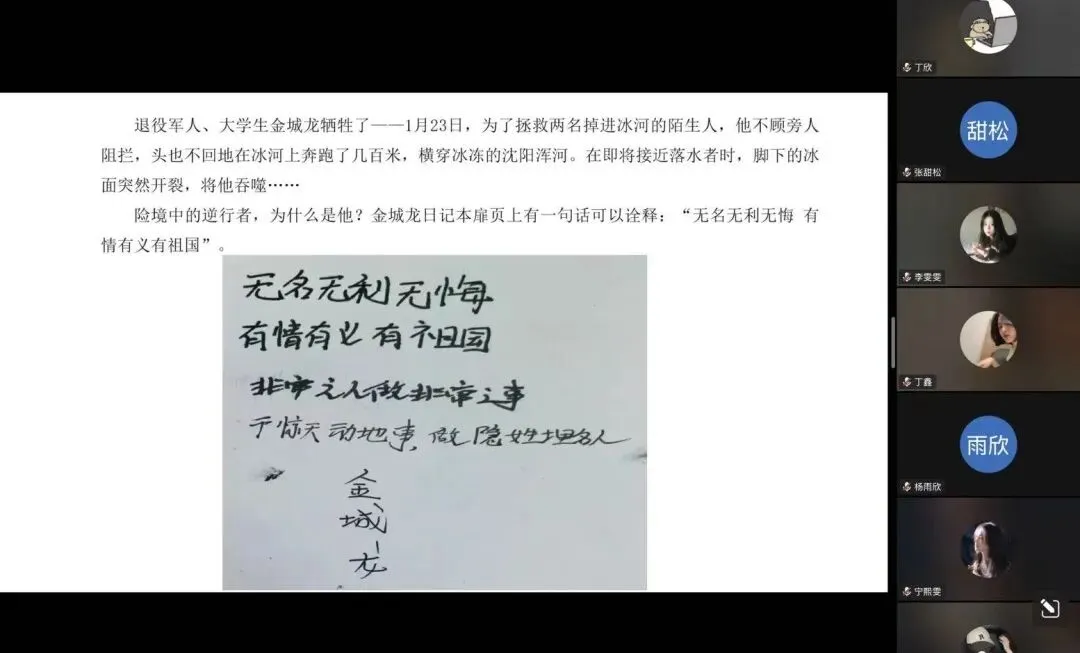 退役军人、大学生金城龙牺牲了——1月23日，为了拯救两名掉进冰河的陌生人，他不顾旁人
阻拦，头也不回地在冰河上奔跑了几百米，横穿冰冻的沈阳浑河。在即将接近落水者时，脚下的冰
面突然开裂，将他吞噬……
险境中的逆行者，为什么是他？金城龙日记本扉页上有一句话可以诠释：“无名无利无悔 有
情有义有祖国”。
无名无利无悔
有情有义有祖国
非常之人做非常之事
干惊天动地事，做隐姓埋名人
金
城
龙
丁欣
甜松
张甜松
李雯雯
丁鑫
雨欣
杨雨欣
宁熙雯